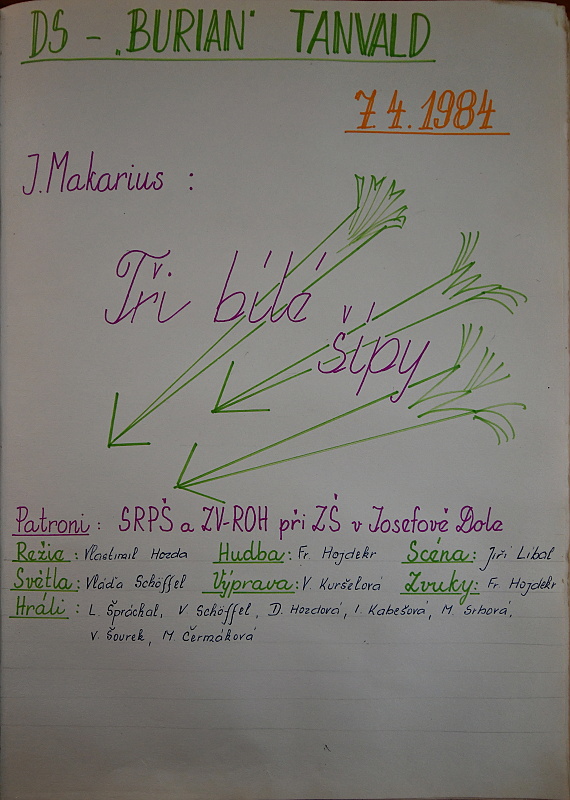 DS - „BURIAN" TANVALD
7.4.1984
J. Makarius :
Tři bílé
šípy
Patroni : SRPŠ a ZV-ROH při ZŠ v Josefově Dole
Režie : Vlastimil Hozda Hudba : Fr. Hojdekr Scéna : Jiří Libal
Světla : Vláďa Schöffel Výprava : V. Kuršelová Zvuky : Fr. Hojdekr
Hráli : L. Šprachal, V. Schöffel, D. Hozdová, I. Kabešová, M. Srbová,
V. Šourek, M. Čermáková